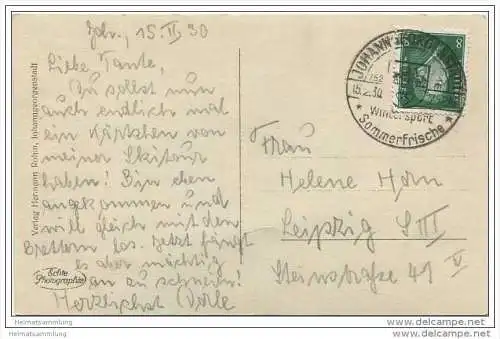 Joh., 15.II.30
Liebe Tante,
Du sollst nun
auch endlich mal
ein Kärtchen von
meiner Skitour
haben! Bin eben
angekommen und
will gleich mit den
Brettern los. Jetzt fängt
es aber mächtig
an zu schneien!
Herzlichst
Verlag Hermann Rohm, Johanngeorgenstadt
Echte
Photographie
8
JOHANNGEORGENSTADT
15.2.30
Wintersport
* Sommerfrische *
Frau
Helene Horn
Leipzig S III
Steinstraße 41 V
Heimatsammlung
Heimatsammlung